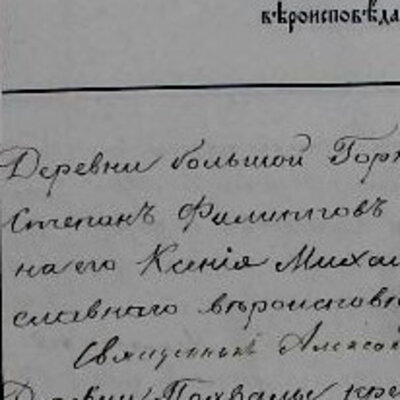 вѣроисповѣда
Деревни большой Горк
Степанъ Филипповъ
на его Ксенія Миха
славнаго вѣроисповѣ
Священникъ Алекса
Деревни Похвалы кре